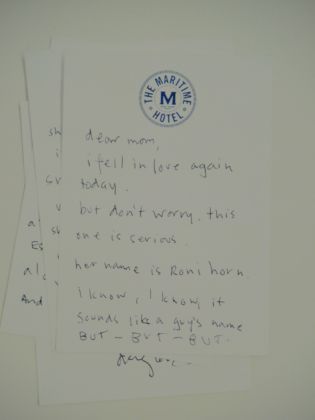 THE MARITIME
M
HOTEL
dear mom,
i fell in love again
today.
but don't worry. this
one is serious.
her name is Roni horn.
i know, i know, it
sounds like a guy's name
BUT - BUT - BUT.
And